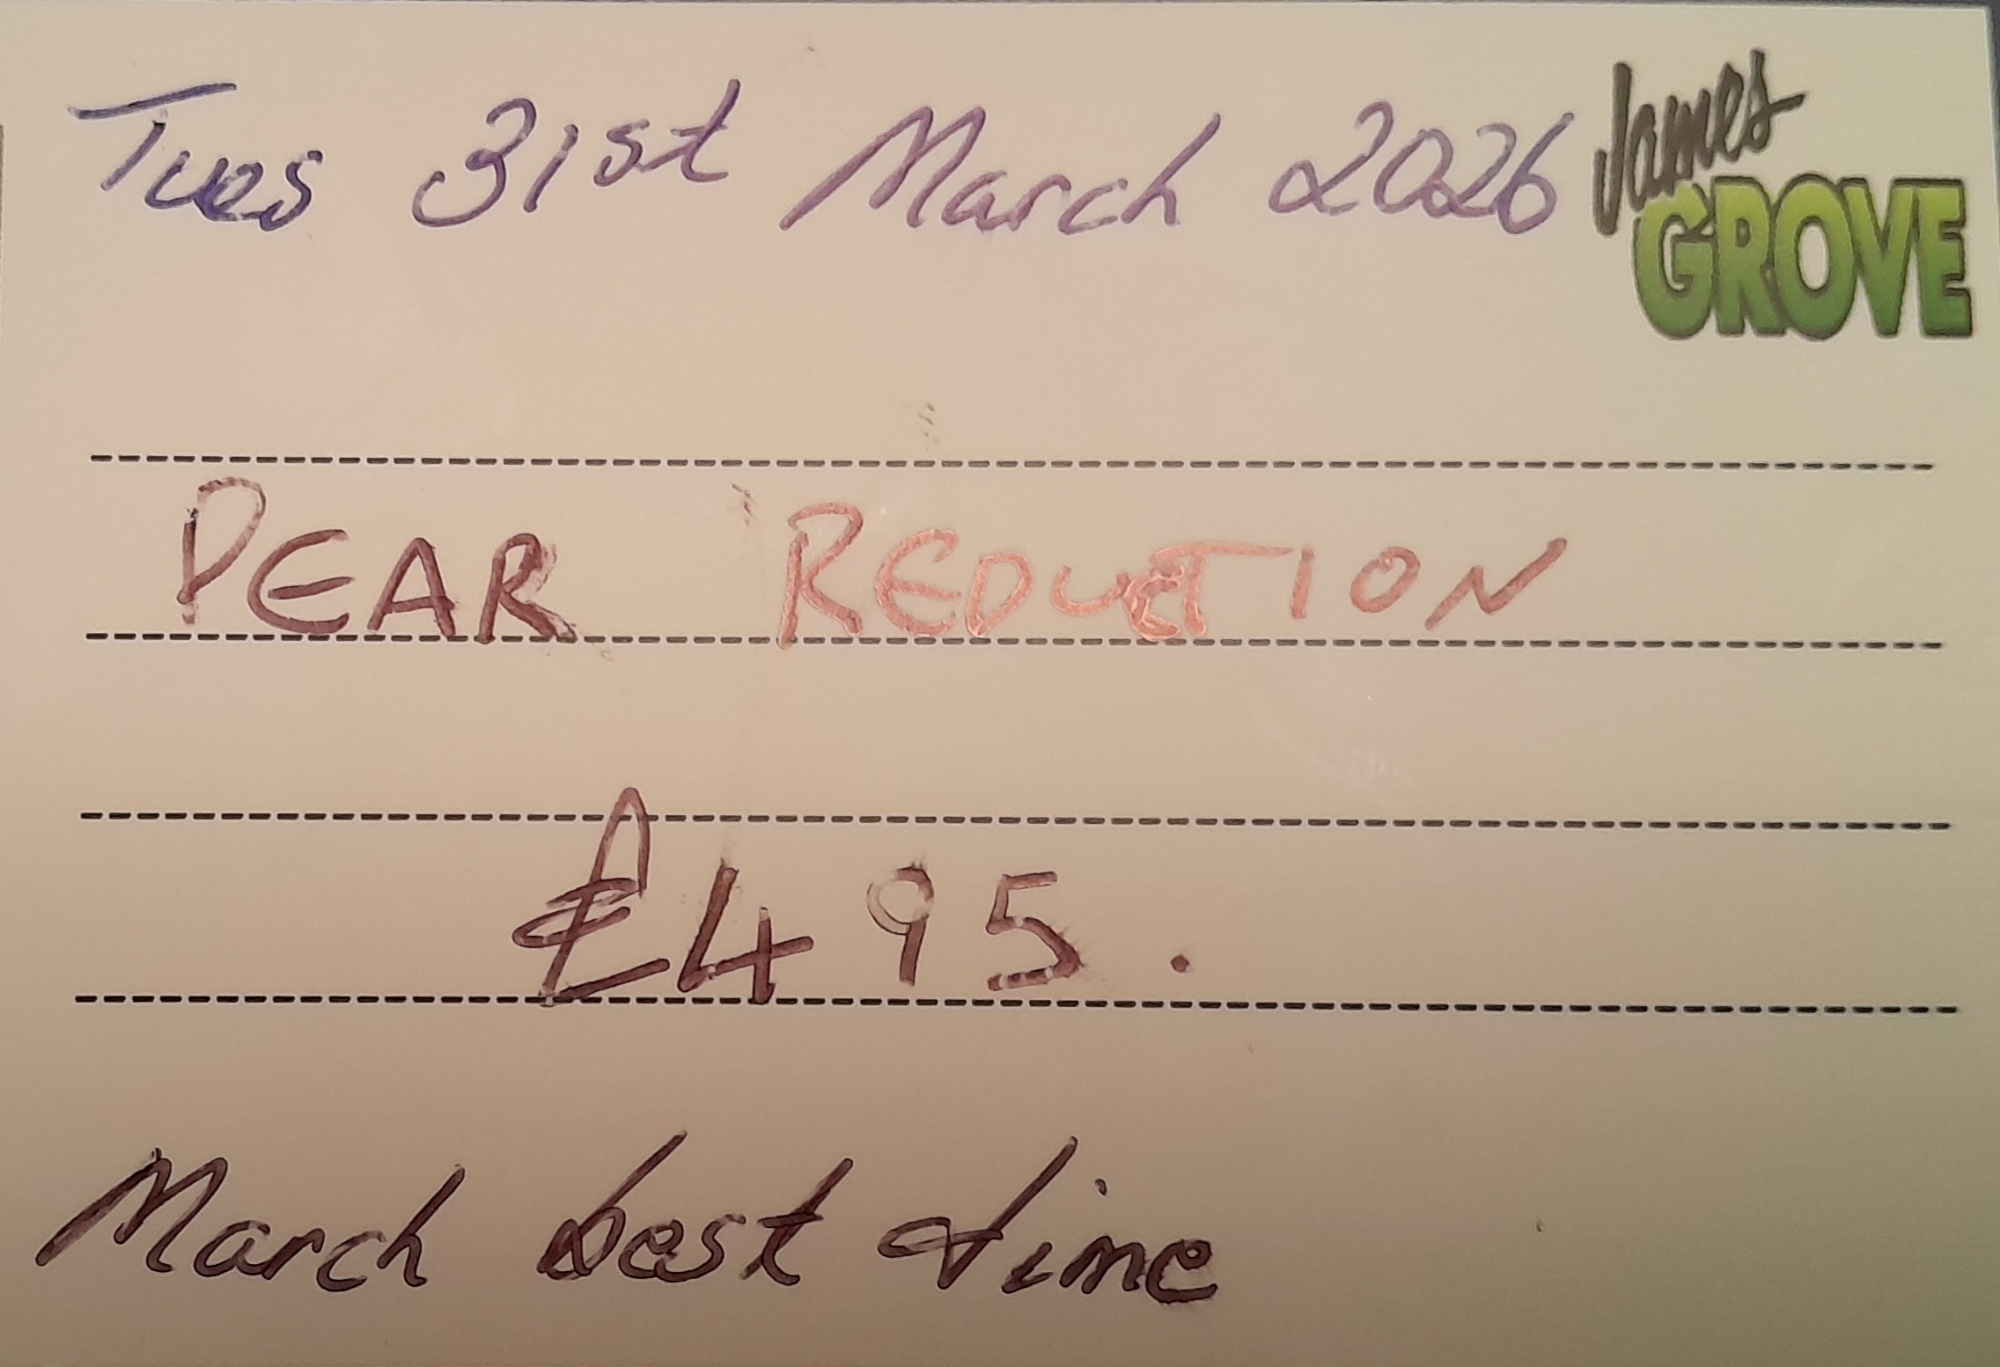 Tues 31st March 2026
James
GROVE
PEAR REDUCTION
£495.
March best time